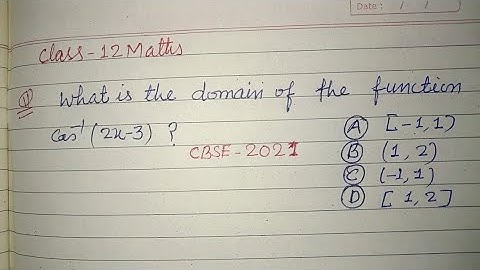 Date : / /
Class - 12 Maths
Q What is the domain of the function
Cos⁻¹ (2x-3) ?
CBSE - 2021
A [-1, 1)
B (1, 2)
C (-1, 1)
D [ 1, 2 ]